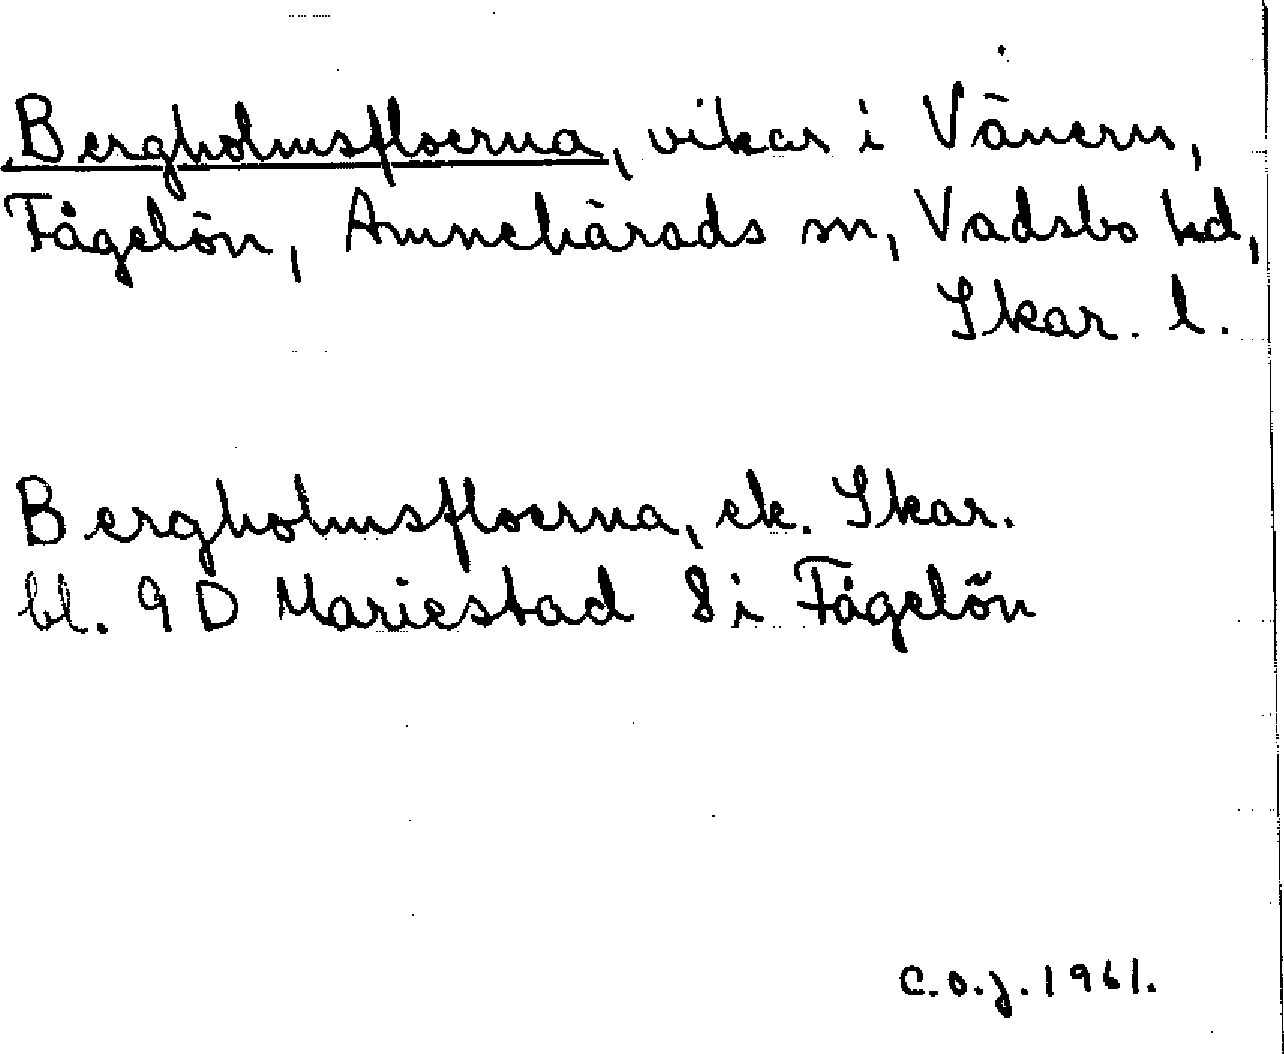 Bergholmsfloerna, vikar i Vänern,
Fågelön, Amnehärads sn, Vadsbo hd,
Skar. l.
Bergholmsfloerna, ek. Skar.
bl. 9 D Mariestad 8 i Fågelön
C.O.J. 1961.